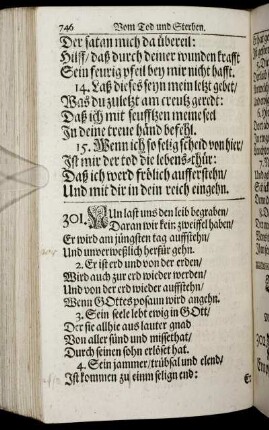 746 Vom Tod und Sterben.
Der satan mich da übereil:
Hilff/ daß durch deiner wunden krafft
Sein feurig pfeil bey mir nicht hafft.
14. Laß dieses seyn mein letzt gebet/
Was du zuletzt am creutz geredt:
Daß ich mit seufftzen meine seel
In deine treue händ befehl.
15. Wenn ich so selig scheid von hier/
Ist mir der tod die lebens-thür:
Daß ich werd frölich aufferstehn/
Und mit dir in dein reich eingehn.
301. NUn last uns den leib begraben/
Daran wir kein zweiffel haben/
Er wird am jüngsten tag auffstehn/
Und unverweßlich herfür gehn.
2. Er ist erd und von der erden/
Wird auch zur erd wieder werden/
Und von der erd wieder auffstehn/
Wenn GOttes posaun wird angehn.
3. Sein seele lebt ewig in GOtt/
Der sie allhie aus lauter gnad
Von aller sünd und missethat/
Durch seinen sohn erlöset hat.
4. Sein jammer/ trübsal und elend/
Ist kommen zu einm selign end:
Er